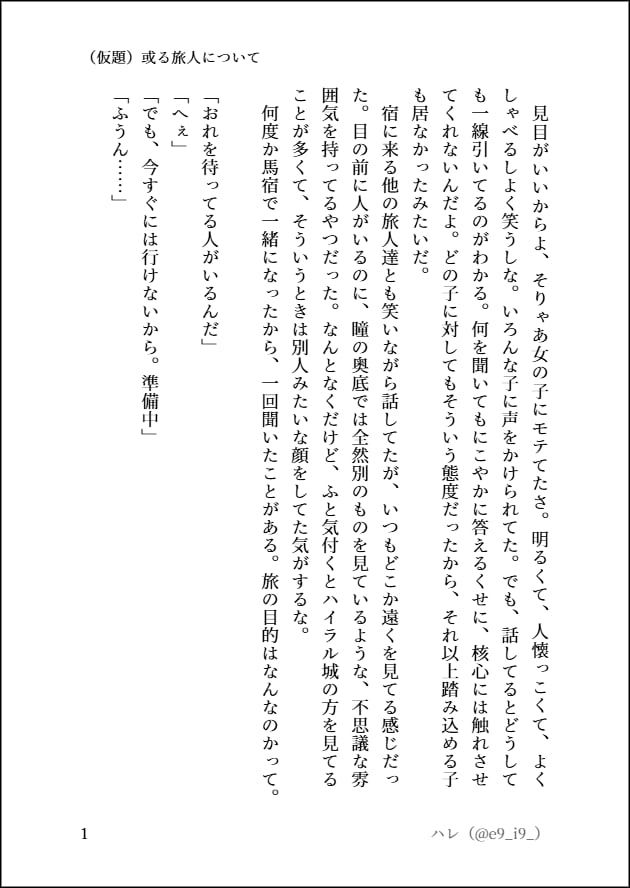 （仮題）或る旅人について
見目がいいからよ、そりゃあ女の子にモテてたさ。明るくて、人懐っこくて、よく
しゃべるしよく笑うしな。いろんな子に声をかけられてた。でも、話してるとどうして
も一線引いてるのがわかる。何を聞いてもにこやかに答えるくせに、核心には触れさせ
てくれないんだよ。どの子に対してもそういう態度だったから、それ以上踏み込める子
も居なかったみたいだ。
宿に来る他の旅人達とも笑いながら話してたが、いつもどこか遠くを見てる感じだっ
た。目の前に人がいるのに、瞳の奥底では全然別のものを見ているような、不思議な雰
囲気を持ってるやつだった。なんとなくだけど、ふと気付くとハイラル城の方を見てる
ことが多くて、そういうときは別人みたいな顔をしてた気がするな。
何度か馬宿で一緒になったから、一回聞いたことがある。旅の目的はなんなのかって。
「おれを待ってる人がいるんだ」
「へぇ」
「でも、今すぐには行けないから。準備中」
「ふうん……」
1
ハレ（@e9_i9_）